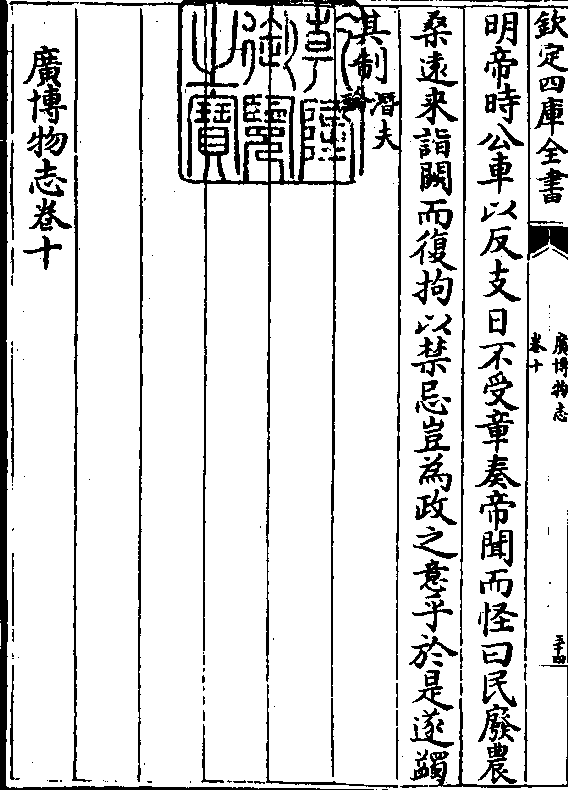 欽定四庫全書
廣博物志
卷十
明帝時公車以反支日不受章奏帝聞而怪曰民廢農
桑遠来詣闕而復拘以禁忌豈為政之意乎於是遂蠲
其制潛夫論
乾隆御覽之寶
廣博物志卷十